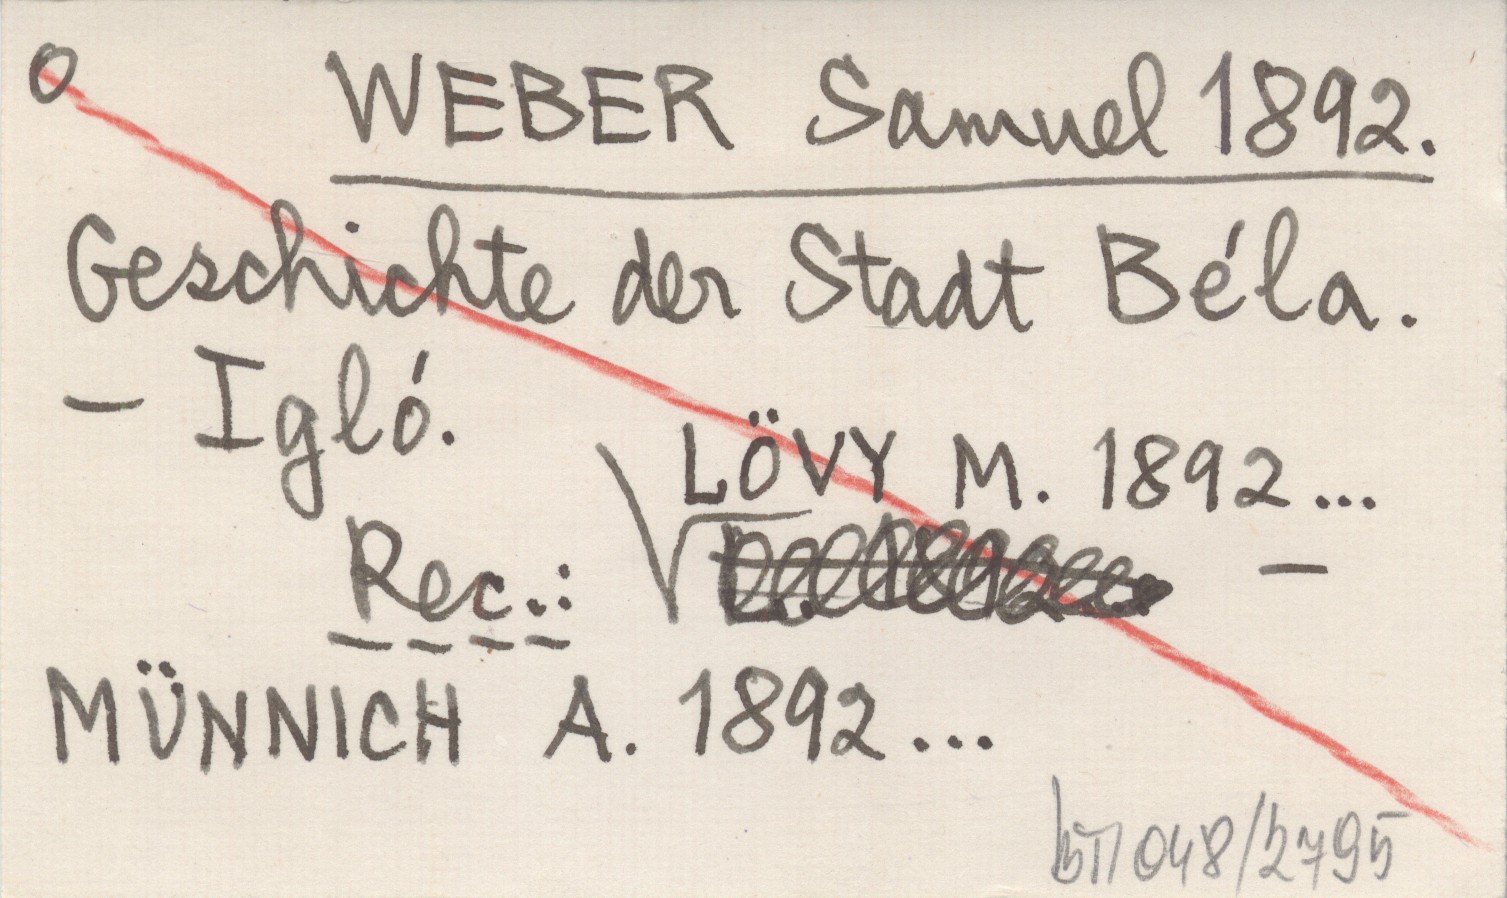 O WEBER Samuel 1892.
Geschichte der Stadt Béla.
– Igló.
LÖVY M. 1892...
Rec.: –
MÜNNICH A. 1892...
048/2795